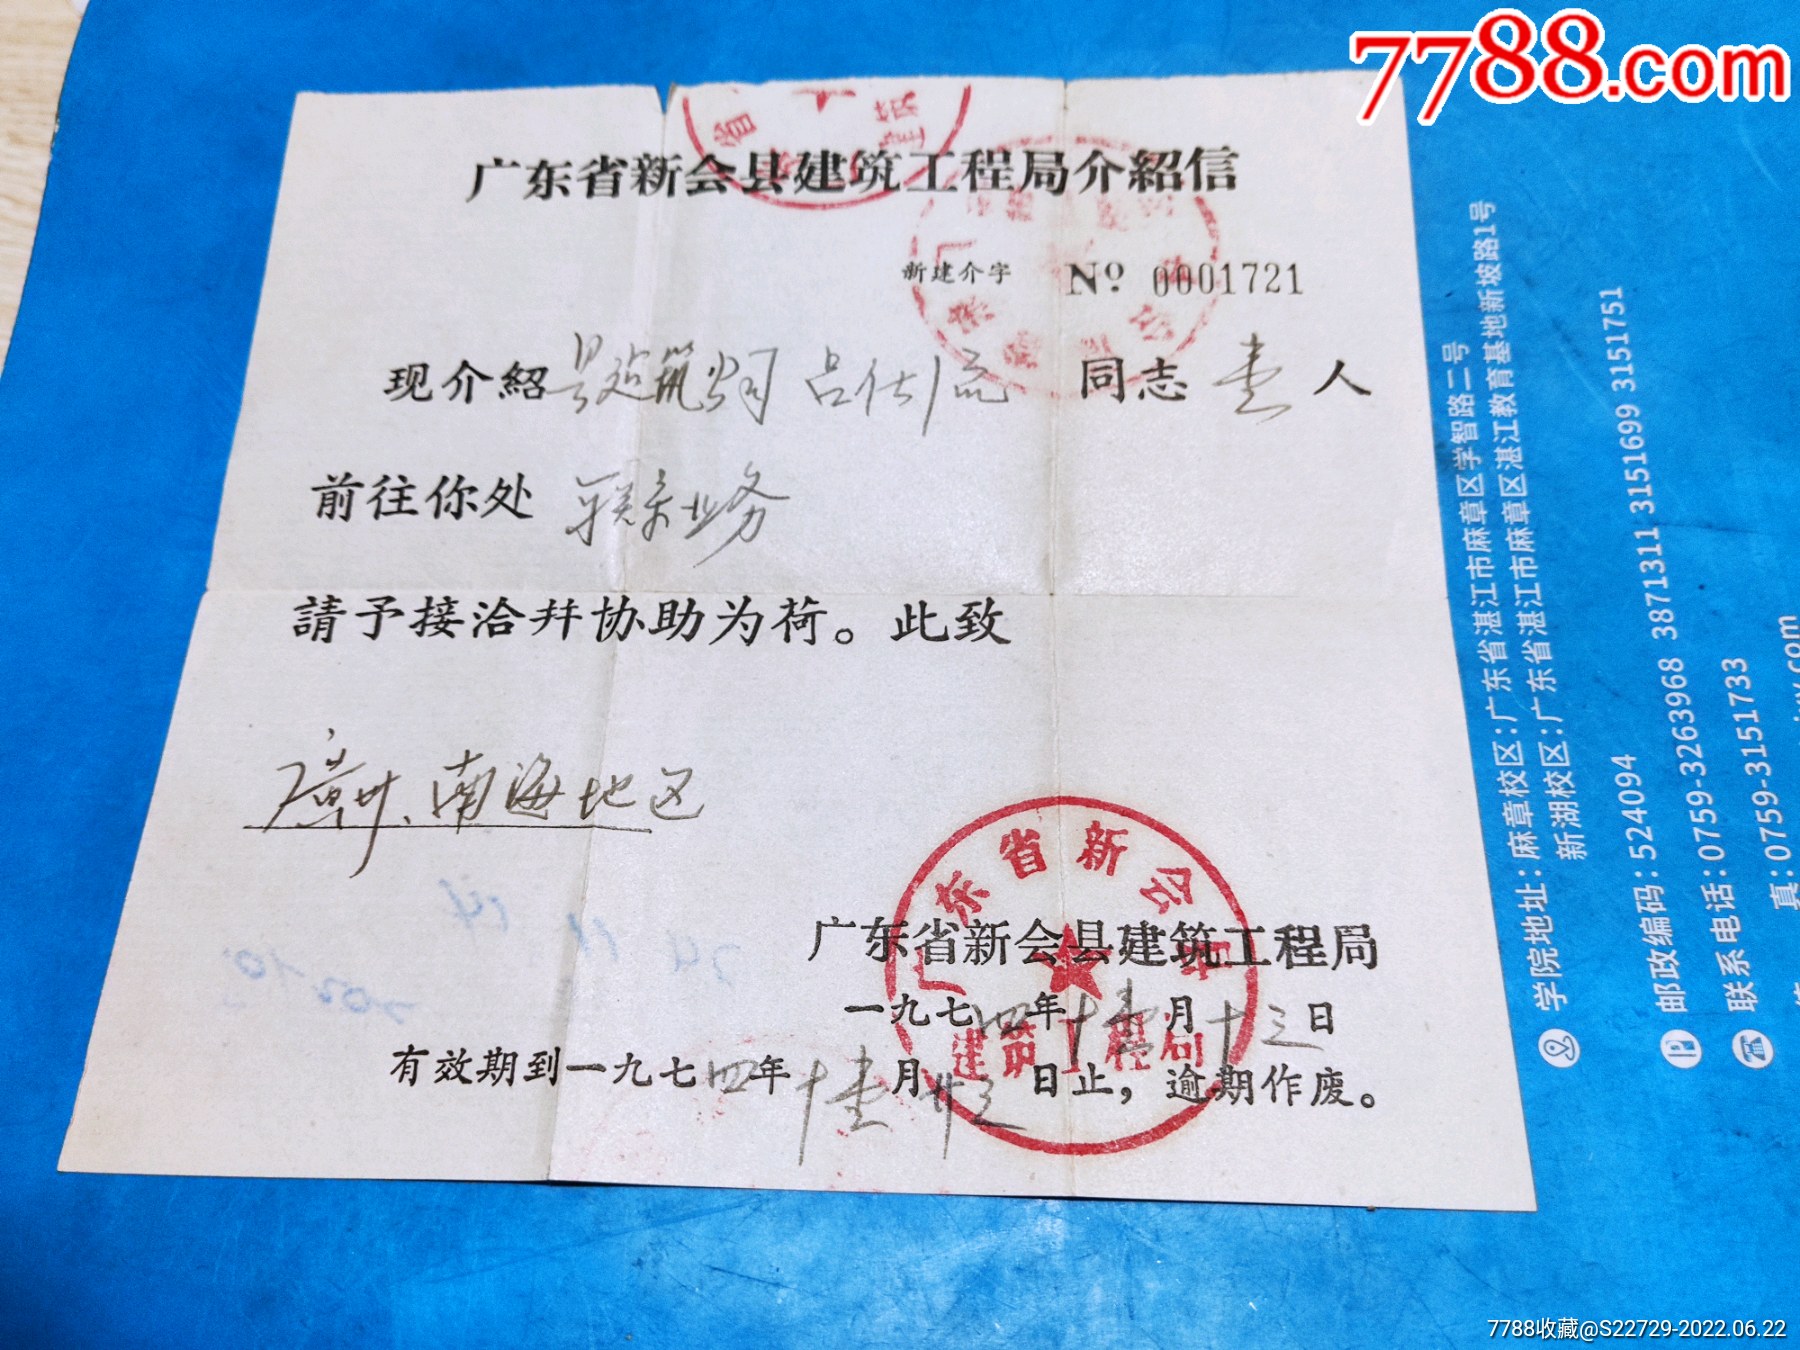 7788.com
广东省新会县建筑工程局介紹信
新建介字 Nº 0001721
现介紹 县建筑公司 吕仕流 同志 壹 人
前往你处 联系业务
請予接洽幷协助为荷。此致
廣州、南海地区
广东省新会县建筑工程局
一九七四年十壹月十三日
有效期到一九七四年十壹月廿三日止，逾期作废。
广东省新会县
建筑工程局
学院地址：麻章校区：广东省湛江市麻章区学智路二号
新湖校区：广东省湛江市麻章区湛江教育基地新坡路1号
邮政编码：524094
联系电话：0759-3263968 3871311 3151699 3151751
真：0759-3151733
7788收藏@S22729-2022.06.22